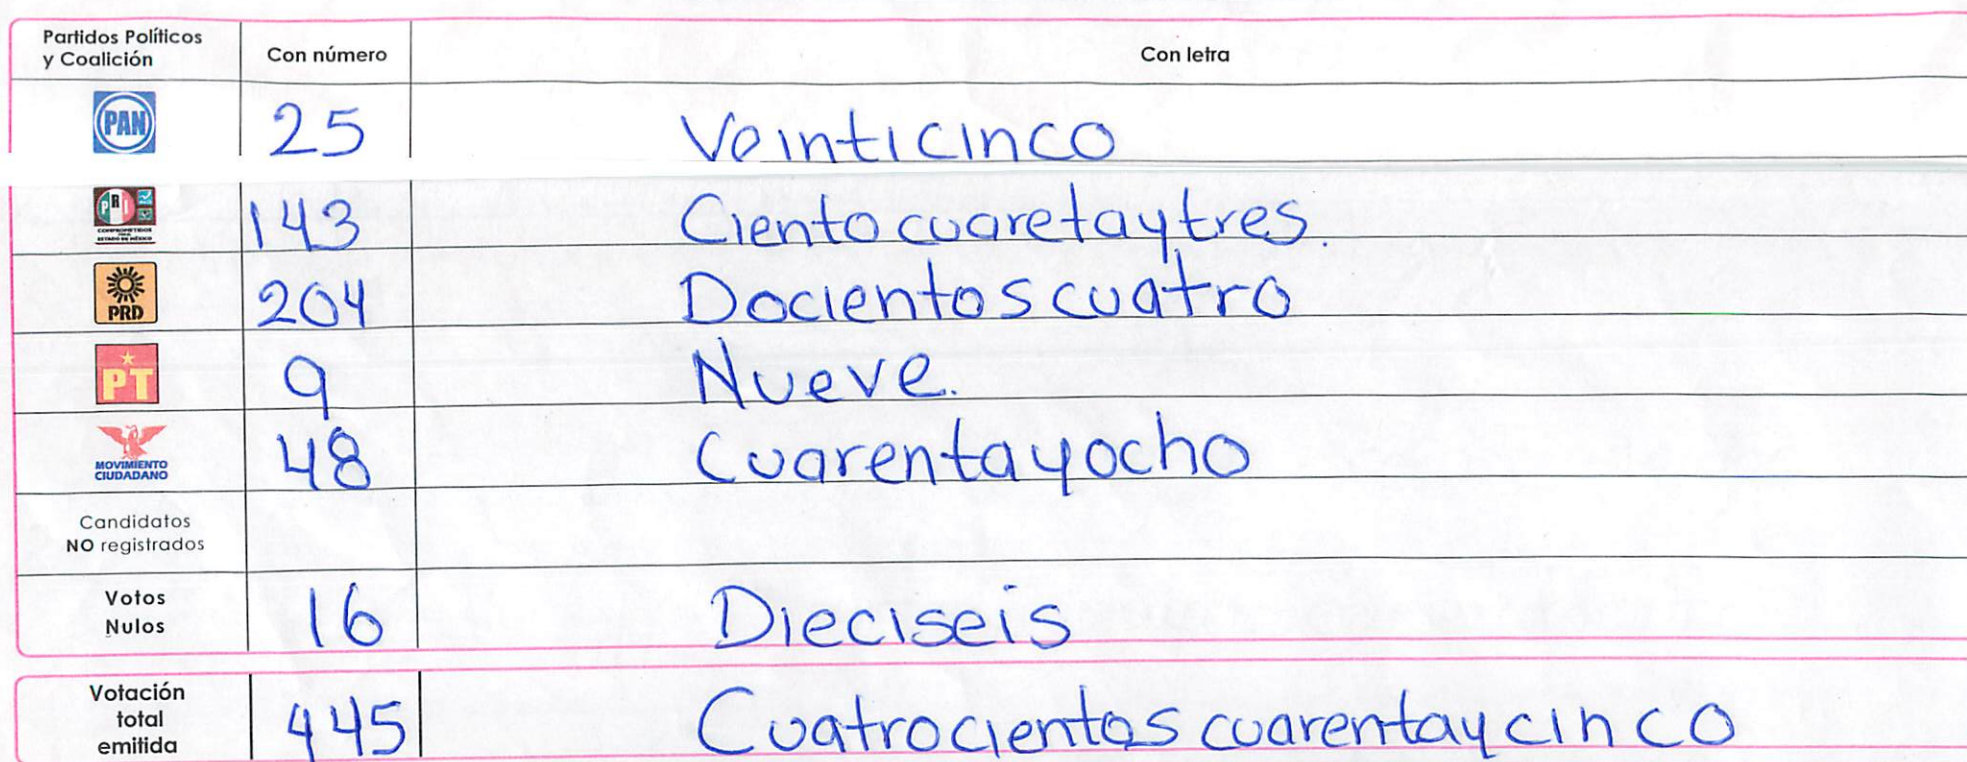 Partidos Políticos
y Coalición
Con número
Con letra
PAN
25
Veinticinco
PRI
COMPROMETIDOS
ESTADO DE MÉXICO
143
Ciento cuaretaytres.
PRD
204
Docientos cuatro
PT
9
Nueve.
MOVIMIENTO
CIUDADANO
48
Cuarentayocho
Candidatos
NO registrados
Votos
Nulos
16
Dieciseis
Votación
total
emitida
445
Cuatrocientos cuarentaycinco